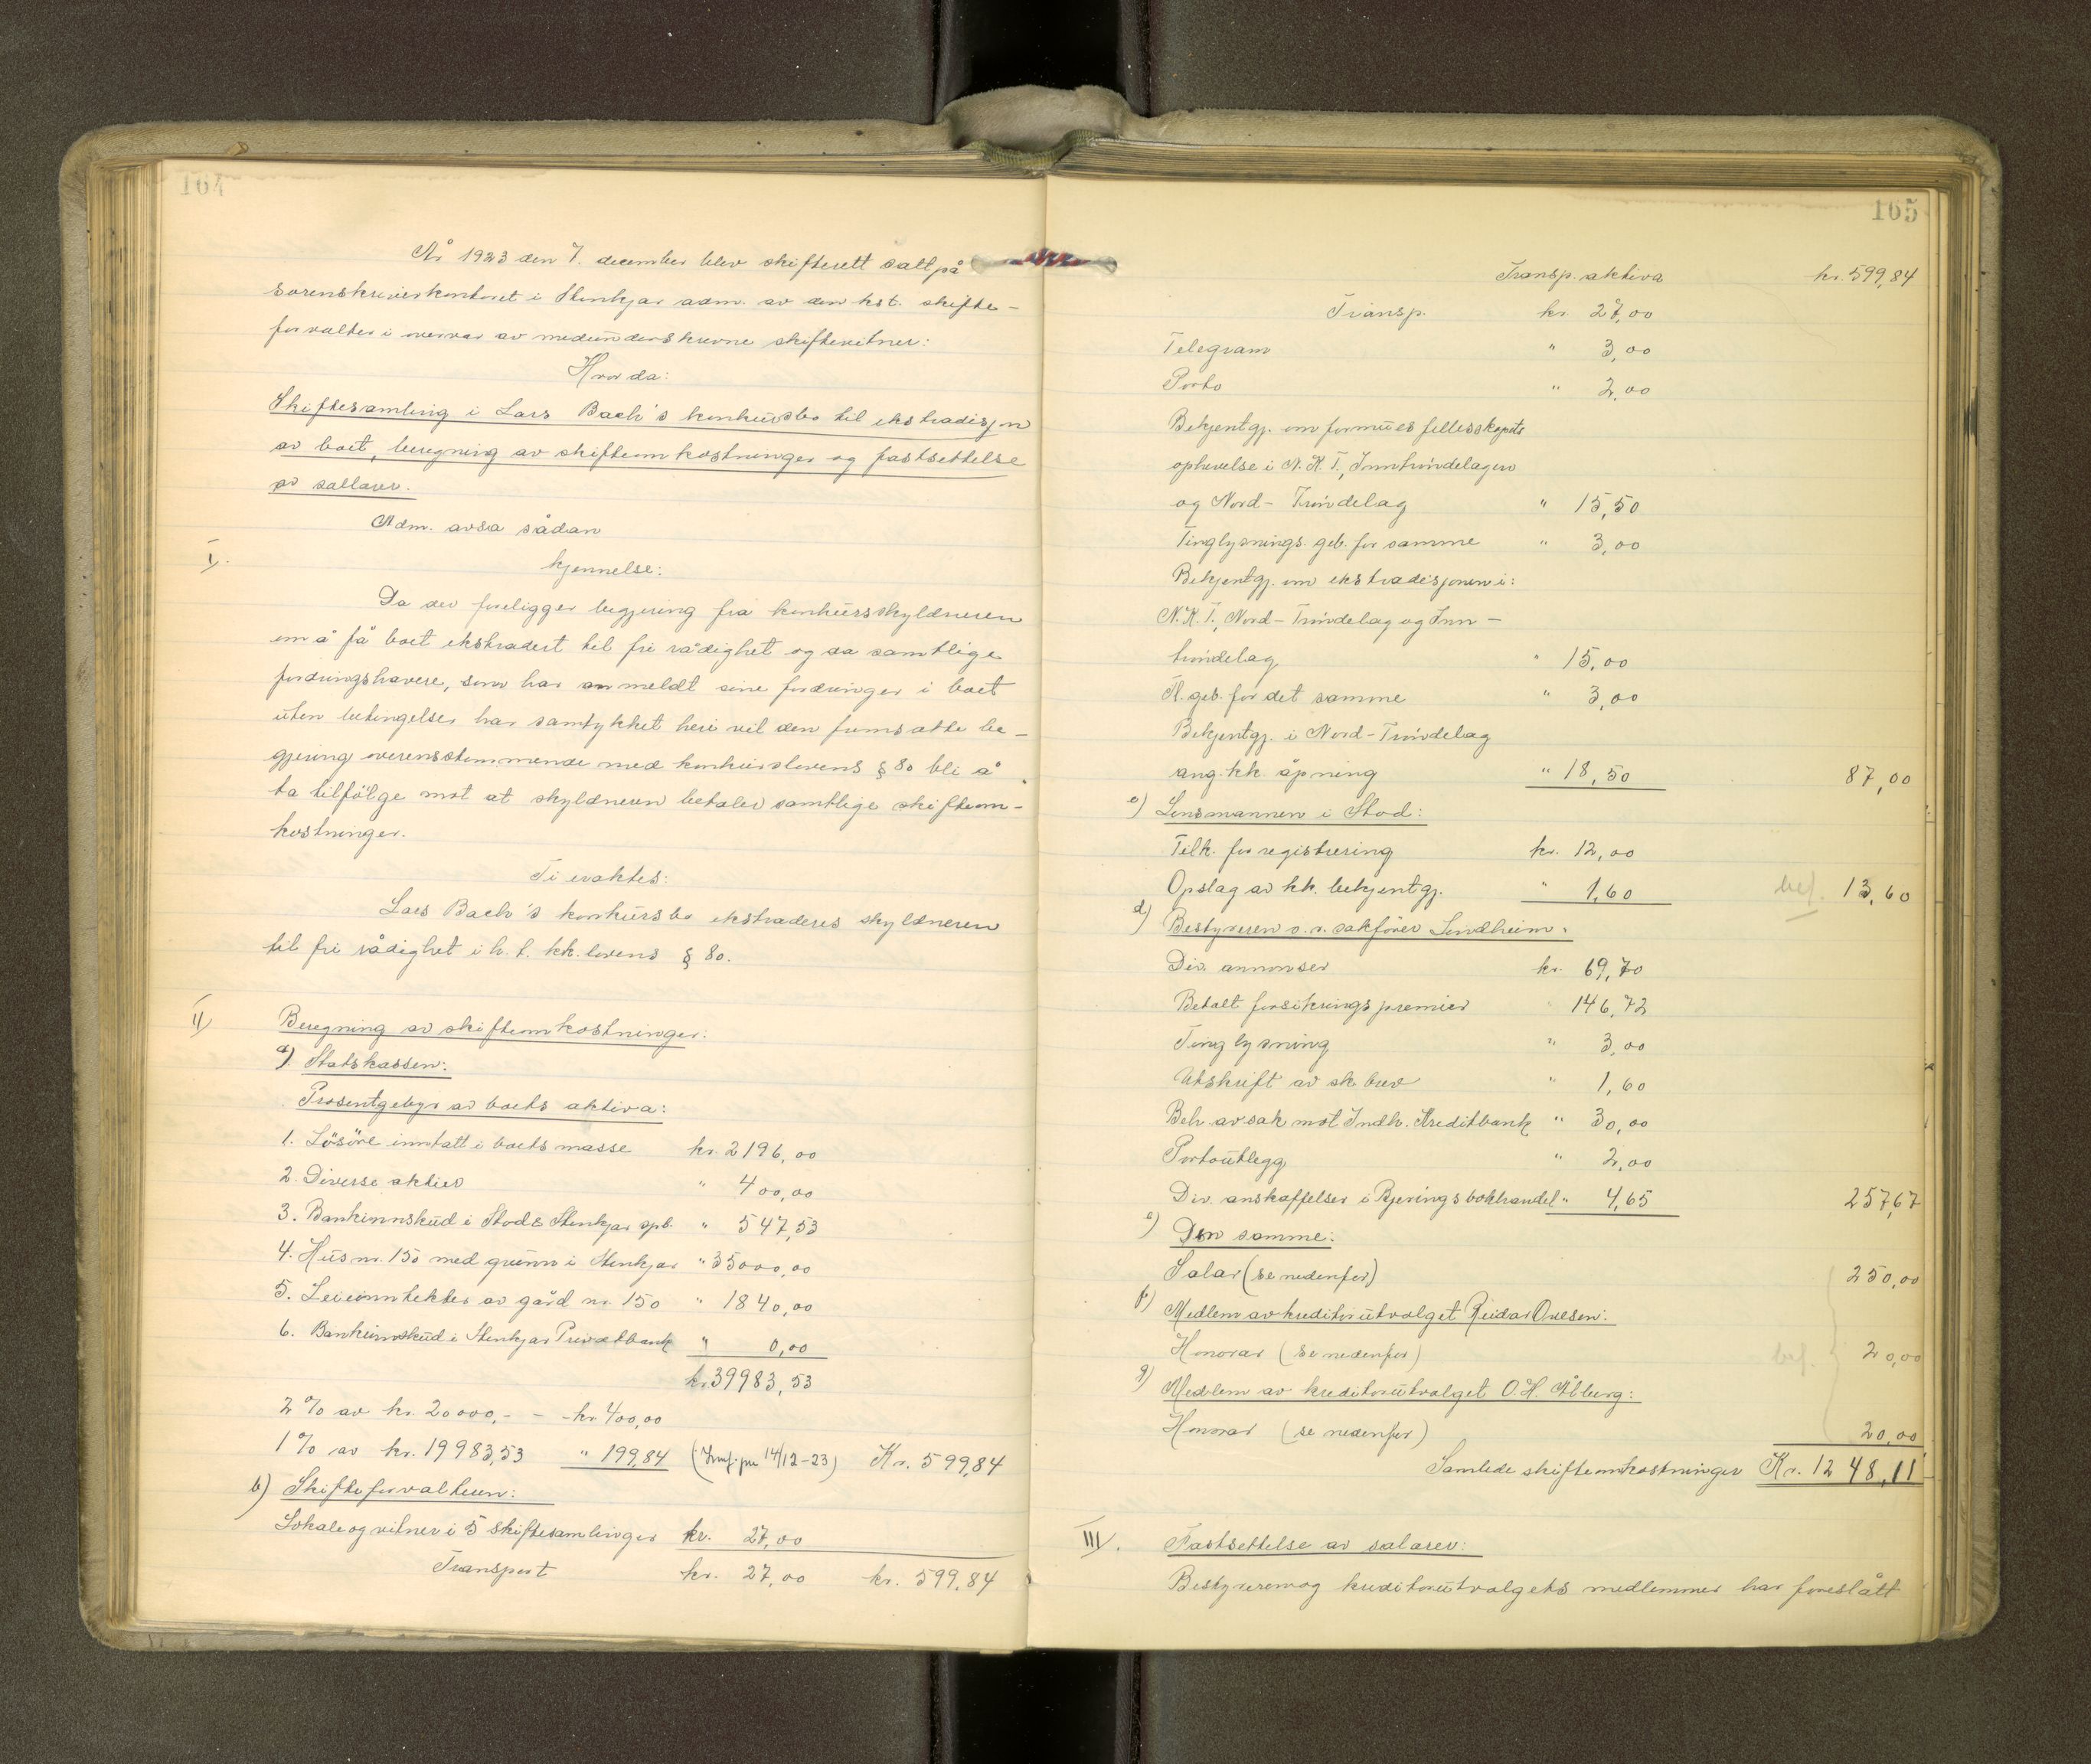 164
År 1923 den 7. december blev skifterett satt på
sorenskriverkontoret i Stenkjær adm. av den kst. skifte-
forvalter i overvær av medunderskrevne skiftevitner:
Hvor da:
Skiftesamling i Lars Bach's konkursbo til ekstradisjon
av boet, beregning av skifteomkostninger og fastsettelse
av sallarer.
Adm. avsa sådan
I.
kjennelse:
Da der foreligger begjering fra konkursskyldneren
om å få boet ekstradert til fri rådighet og da samtlige
fordringshavere, som har anmeldt sine fordringer i boet
uten betingelser har samtykket heri vil den fremsatte be-
gjering overensstemmende med konkurslovens § 80 bli å
ta tilfölge mot at skyldneren betaler samtlige skifteom-
kostninger.
Ti eraktes:
Lars Bach's konkursbo ekstraderes skyldneren
til fri rådighet i h. t. kk. lovens § 80.
II
Beregning av skifteomkostninger:
a) Statskassen:
Prosentgebyr av boets aktiva:
1. Lösöre inntatt i boets masse kr. 2196,00
2. Diverse aktier " 400,00
3. Bankinnskud i Stod & Stenkjær spb. " 547,53
4. Hus nr. 150 med grunn i Stenkjær " 35000,00
5. Leieinntekter av gård nr. 150 " 1840,00
6. Bankinnskud i Stenkjær Privatbank " 0,00
kr. 39983,53
2 % av kr. 20000,- - kr. 400,00
1 % av kr. 19983,53 " 199,84 (Innf. pr 14/12-23) Kr. 599,84
b) Skifteforvalteren:
Lokale og vitner i 5 skiftesamlinger kr. 27,00
Transport kr. 27,00 kr. 599,84
165
Transp. aktiva kr. 599,84
Transp. kr. 27,00
Telegram " 3,00
Porto " 2,00
Bekjentgj. om formuesfellesskapets
ophevelse i N. K. T., Inntröndelagen
og Nord-Tröndelag " 15,50
Tinglysnings. geb. for samme " 3,00
Bekjentgj. om ekstradisjonen i:
N. K. T., Nord-Tröndelag og Inn-
tröndelag " 15,00
Tl. geb. for det samme " 3,00
Bekjentgj. i Nord-Tröndelag
ang. kk. åpning " 18,50 87,00
c) Lensmannen i Stod:
Tilk. for registrering kr. 12,00
Opslag av kk. bekjentgj. " 1,60 bet. 13,60
d) Bestyreren o. r. sakförer Lindheim:
Div. annonser kr. 69,70
Betalt forsikringspremier " 146,72
Tinglysning " 3,00
Utskrift av sk. brev " 1,60
Beh. av sak mot Indh. Kreditbank " 30,00
Portoutlegg " 2,00
Div. anskaffelser i Bjerings bokhandel " 4,65 257,67
e) Den samme:
Salar (se nedenfor) 250,00
f) Medlem av kreditorutvalget Reidar Ovesen:
Honorar (se nedenfor) bet. 20,00
g) Medlem av kreditorutvalget O. H. Ålberg:
Honorar (se nedenfor) 20,00
Samlede skifteomkostninger Kr. 1248,11
III.
Fastsettelse av salarer:
Bestyreren og kreditorutvalgets medlemmer har foreslått